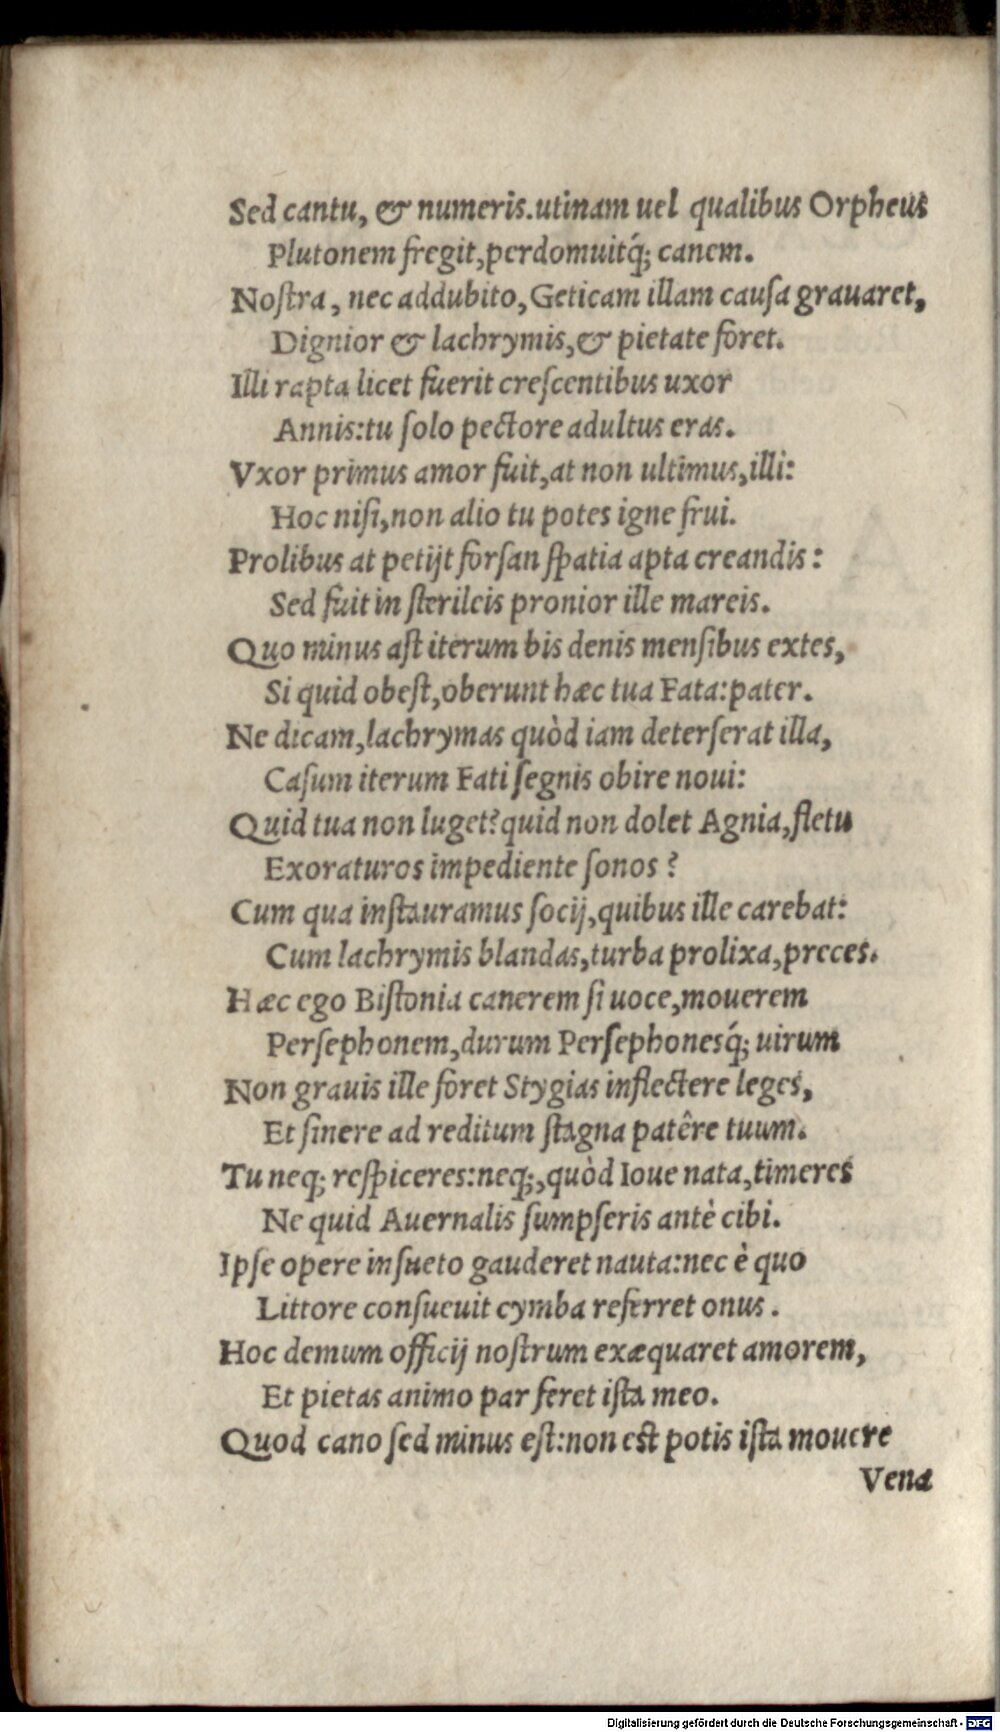 Sed cantu, & numeris.utinam uel qualibus Orpheus
Plutonem fregit,perdomuitq́; canem.
Noſtra, nec addubito,Geticam illam cauſa grauaret,
Dignior & lachrymis,& pietate foret.
Illi rapta licet fuerit creſcentibus uxor
Annis:tu ſolo pectore adultus eras.
Vxor primus amor fuit,at non ultimus,illi:
Hoc niſi,non alio tu potes igne frui.
Prolibus at petijt forſan ſpatia apta creandis:
Sed fuit in ſterileis pronior ille mareis.
Quo minus aſt iterum bis denis menſibus extes,
Si quid obeſt,oberunt hæc tua Fata:pater.
Ne dicam,lachrymas quòd iam deterſerat illa,
Caſum iterum Fati ſegnis obire noui:
Quid tua non luget?quid non dolet Agnia,fletu
Exoraturos impediente ſonos?
Cum qua inſtauramus ſocij,quibus ille carebat:
Cum lachrymis blandas,turba prolixa,preces.
Hæc ego Biſtonia canerem ſi uoce,mouerem
Perſephonem,durum Perſephonesq́; uirum
Non grauis ille foret Stygias inflectere leges,
Et ſinere ad reditum ſtagna patêre tuum.
Tu neq; reſpiceres:neq;,quòd Ioue nata,timeres
Ne quid Auernalis ſumpſeris antè cibi.
Ipſe opere inſueto gauderet nauta:nec è quo
Littore conſueuit cymba referret onus.
Hoc demum officij noſtrum exæquaret amorem,
Et pietas animo par feret iſta meo.
Quod cano ſed minus eſt:non eſt potis iſta mouere
Vena
Digitalisierung gefördert durch die Deutsche Forschungsgemeinschaft - DFG